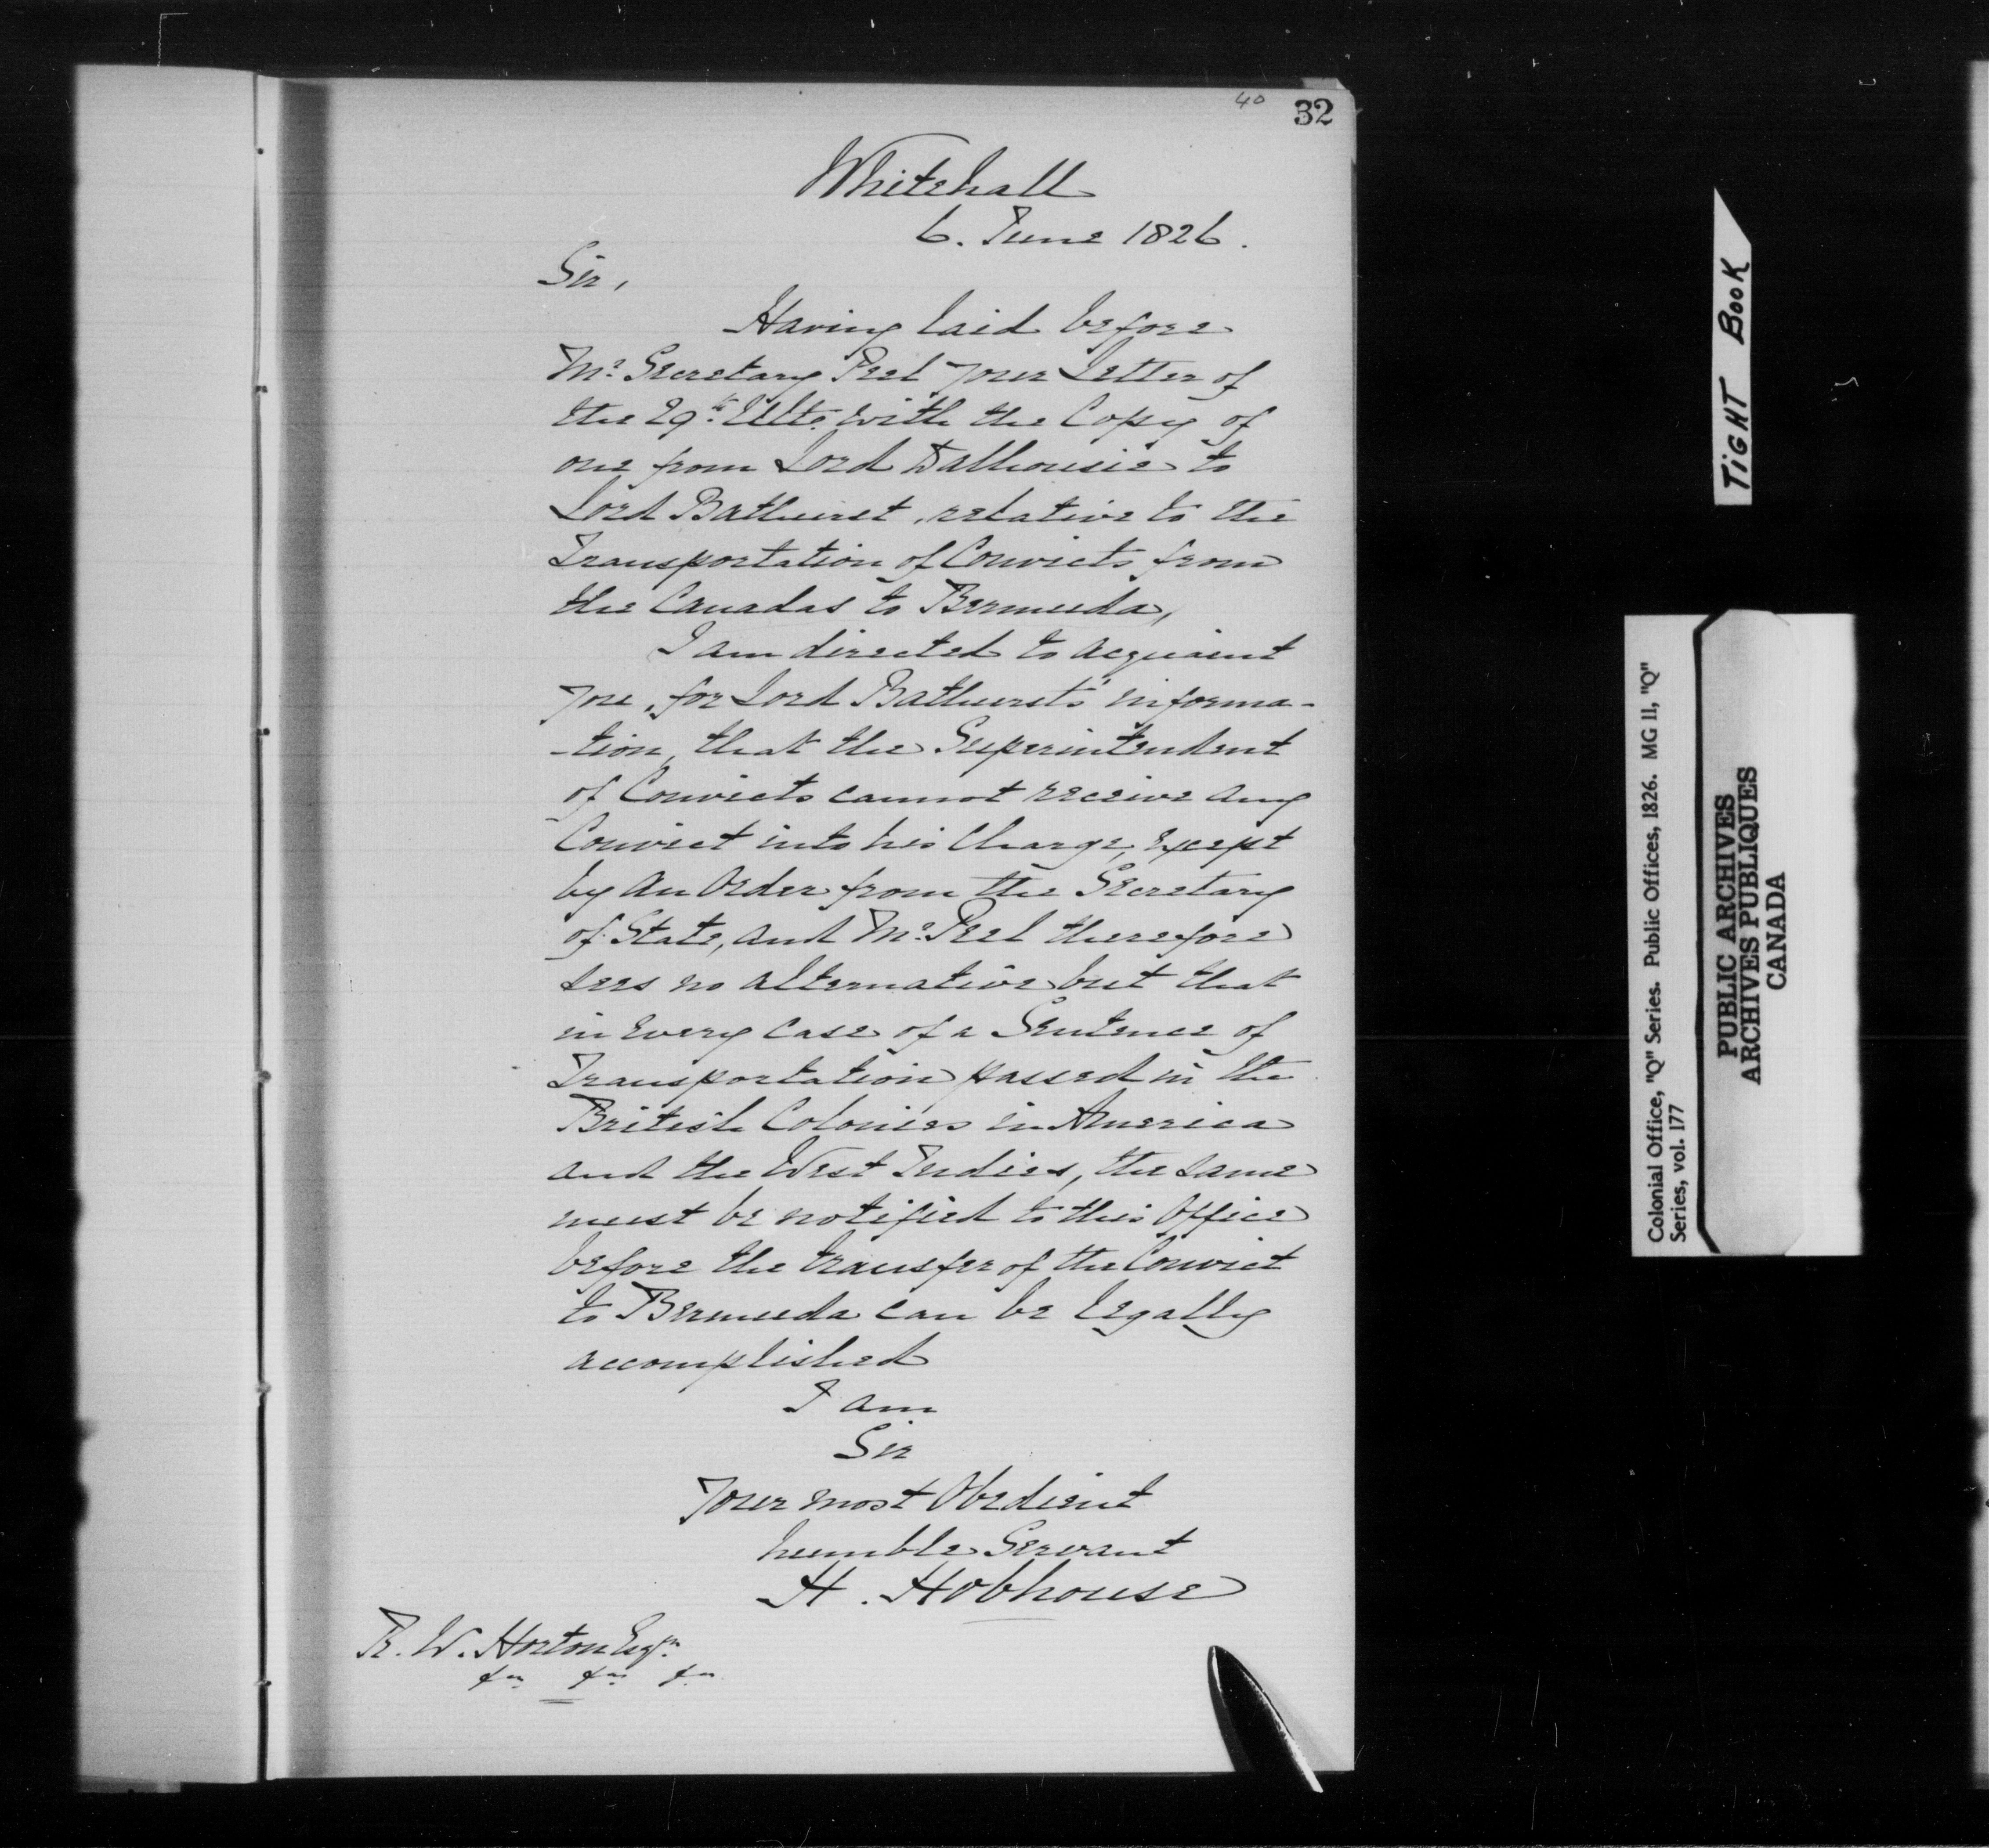 40 32
Whitehall
6. June 1826.
Sir,
Having laid before
Mr. Secretary Peel your Letter of
the 29th. Ulto. with the Copy of
one from Lord Dalhousie to
Lord Bathurst, relative to the
Transportation of Convicts from
the Canadas to Bermuda,
I am directed to acquaint
you, for Lord Bathurst's informa-
-tion, that the Superintendent
of Convicts cannot receive any
Convict into his Charge, except
by an Order from the Secretary
of State, and Mr. Peel therefore
sees no alternative but that
in every case of a Sentence of
Transportation passed in the
British Colonies in America
and the West Indies, the same
must be notified to this Office
before the transfer of the Convict
to Bermuda can be legally
accomplished
I am
Sir
Your most Obedient
humble Servant
H. Hobhouse
R. W. Horton Esqr.
&c &c &c
TIGHT BOOK
Colonial Office, "Q" Series. Public Offices, 1826. MG 11, "Q"
Series, vol. 177
PUBLIC ARCHIVES
ARCHIVES PUBLIQUES
CANADA